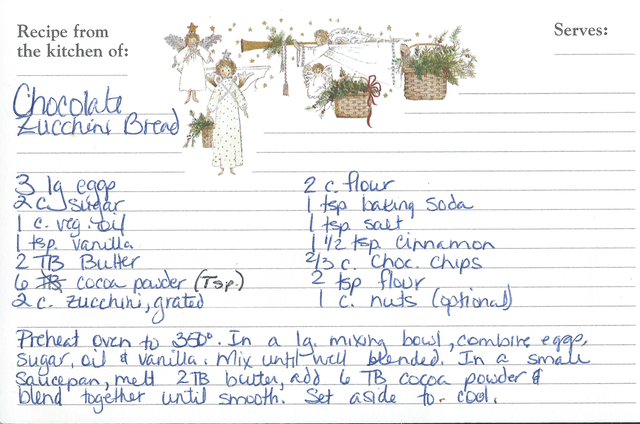 Recipe from
the kitchen of:
Serves:
Chocolate
Zucchini Bread
3 lg eggs
2 c. sugar
1 c. veg. oil
1 tsp. vanilla
2 TB Butter
6 TB cocoa powder (Tsp.)
2 c. zucchini, grated
2 c. flour
1 tsp baking soda
1 tsp salt
1 1/2 tsp cinnamon
2/3 c. choc. chips
2 tsp flour
1 c. nuts (optional)
Preheat oven to 350°. In a lg. mixing bowl, combine eggs,
sugar, oil & vanilla. Mix until well blended. In a small
saucepan, melt 2 TB butter, add 6 TB cocoa powder &
blend together until smooth. Set aside to cool.